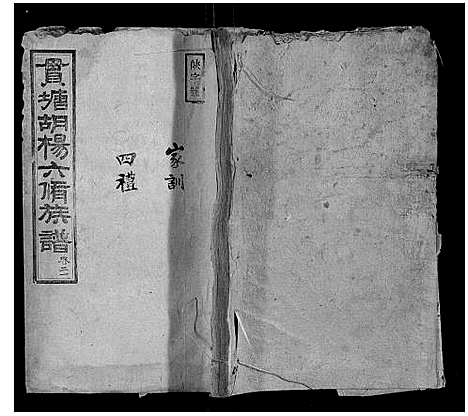 家訓
四禮
貫塘胡楊六脩族譜
卷二